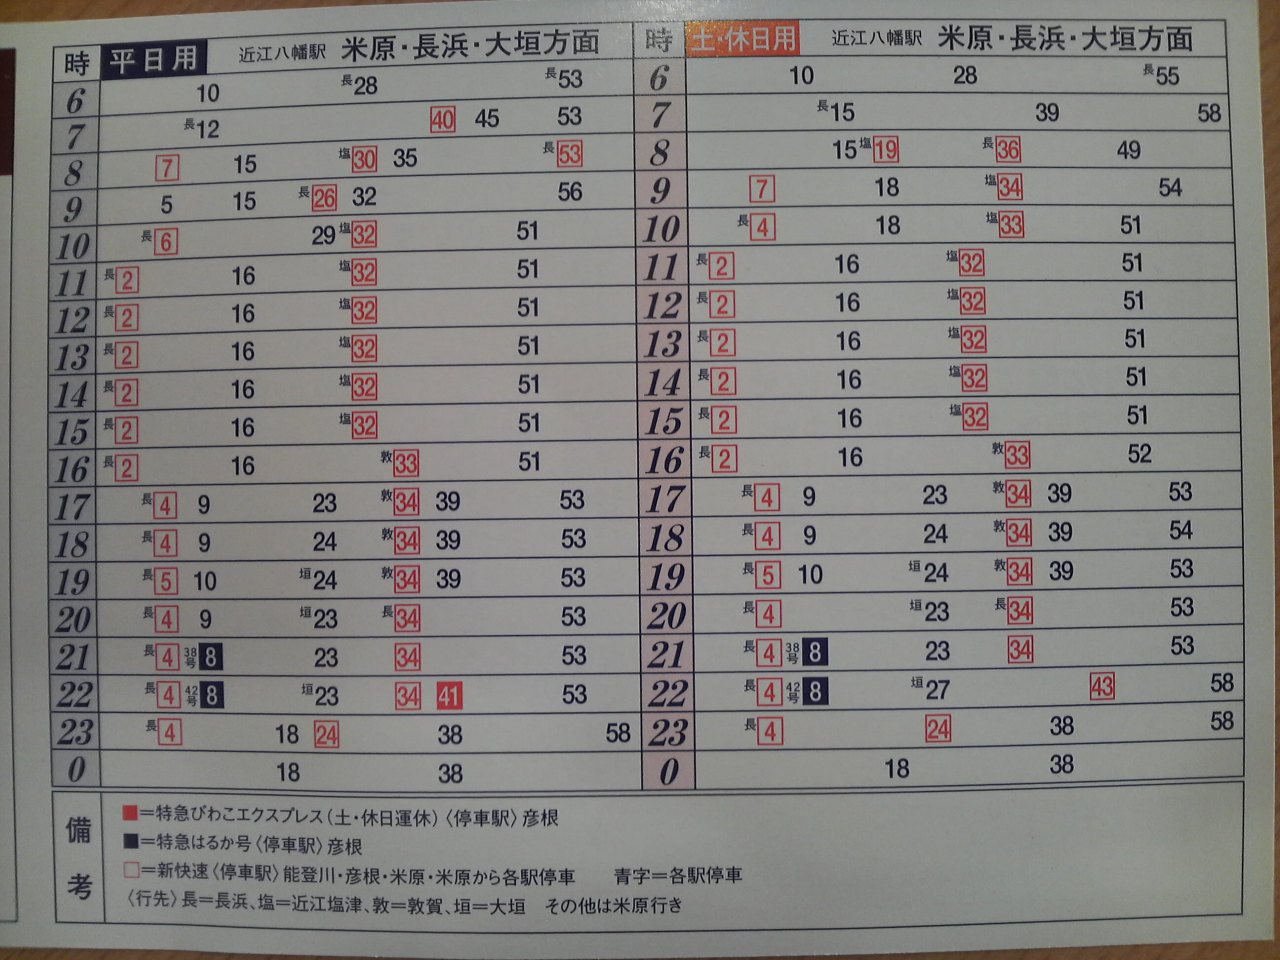 時 平日用 近江八幡駅 米原・長浜・大垣方面 時 土・休日用 近江八幡駅 米原・長浜・大垣方面
6 10 長28 長53 6 10 28 長55
7 長12 40 45 53 7 長15 39 58
8 7 15 塩30 35 長53 8 15 塩19 長36 49
9 5 15 長26 32 56 9 7 18 塩34 54
10 長6 29 塩32 51 10 長4 18 塩33 51
11 長2 16 塩32 51 11 長2 16 塩32 51
12 長2 16 塩32 51 12 長2 16 塩32 51
13 長2 16 塩32 51 13 長2 16 塩32 51
14 長2 16 塩32 51 14 長2 16 塩32 51
15 長2 16 塩32 51 15 長2 16 塩32 51
16 長2 16 敦33 51 16 長2 16 敦33 52
17 長4 9 23 敦34 39 53 17 長4 9 23 敦34 39 53
18 長4 9 24 敦34 39 53 18 長4 9 24 敦34 39 54
19 長5 10 垣24 敦34 39 53 19 長5 10 垣24 敦34 39 53
20 長4 9 垣23 長34 53 20 長4 垣23 長34 53
21 長4 38号8 23 34 53 21 長4 38号8 23 34 53
22 長4 42号8 垣23 34 41 53 22 長4 42号8 垣27 43 58
23 長4 18 24 38 58 23 長4 24 38 58
0 18 38 0 18 38
備考
■=特急びわこエクスプレス(土・休日運休)〈停車駅〉彦根
■=特急はるか号〈停車駅〉彦根
□=新快速〈停車駅〉能登川・彦根・米原・米原から各駅停車 青字=各駅停車
〈行先〉長=長浜、塩=近江塩津、敦=敦賀、垣=大垣 その他は米原行き